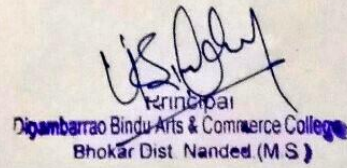 Principal
Digambarrao Bindu Arts & Commerce College
Bhokar Dist. Nanded.(M S )